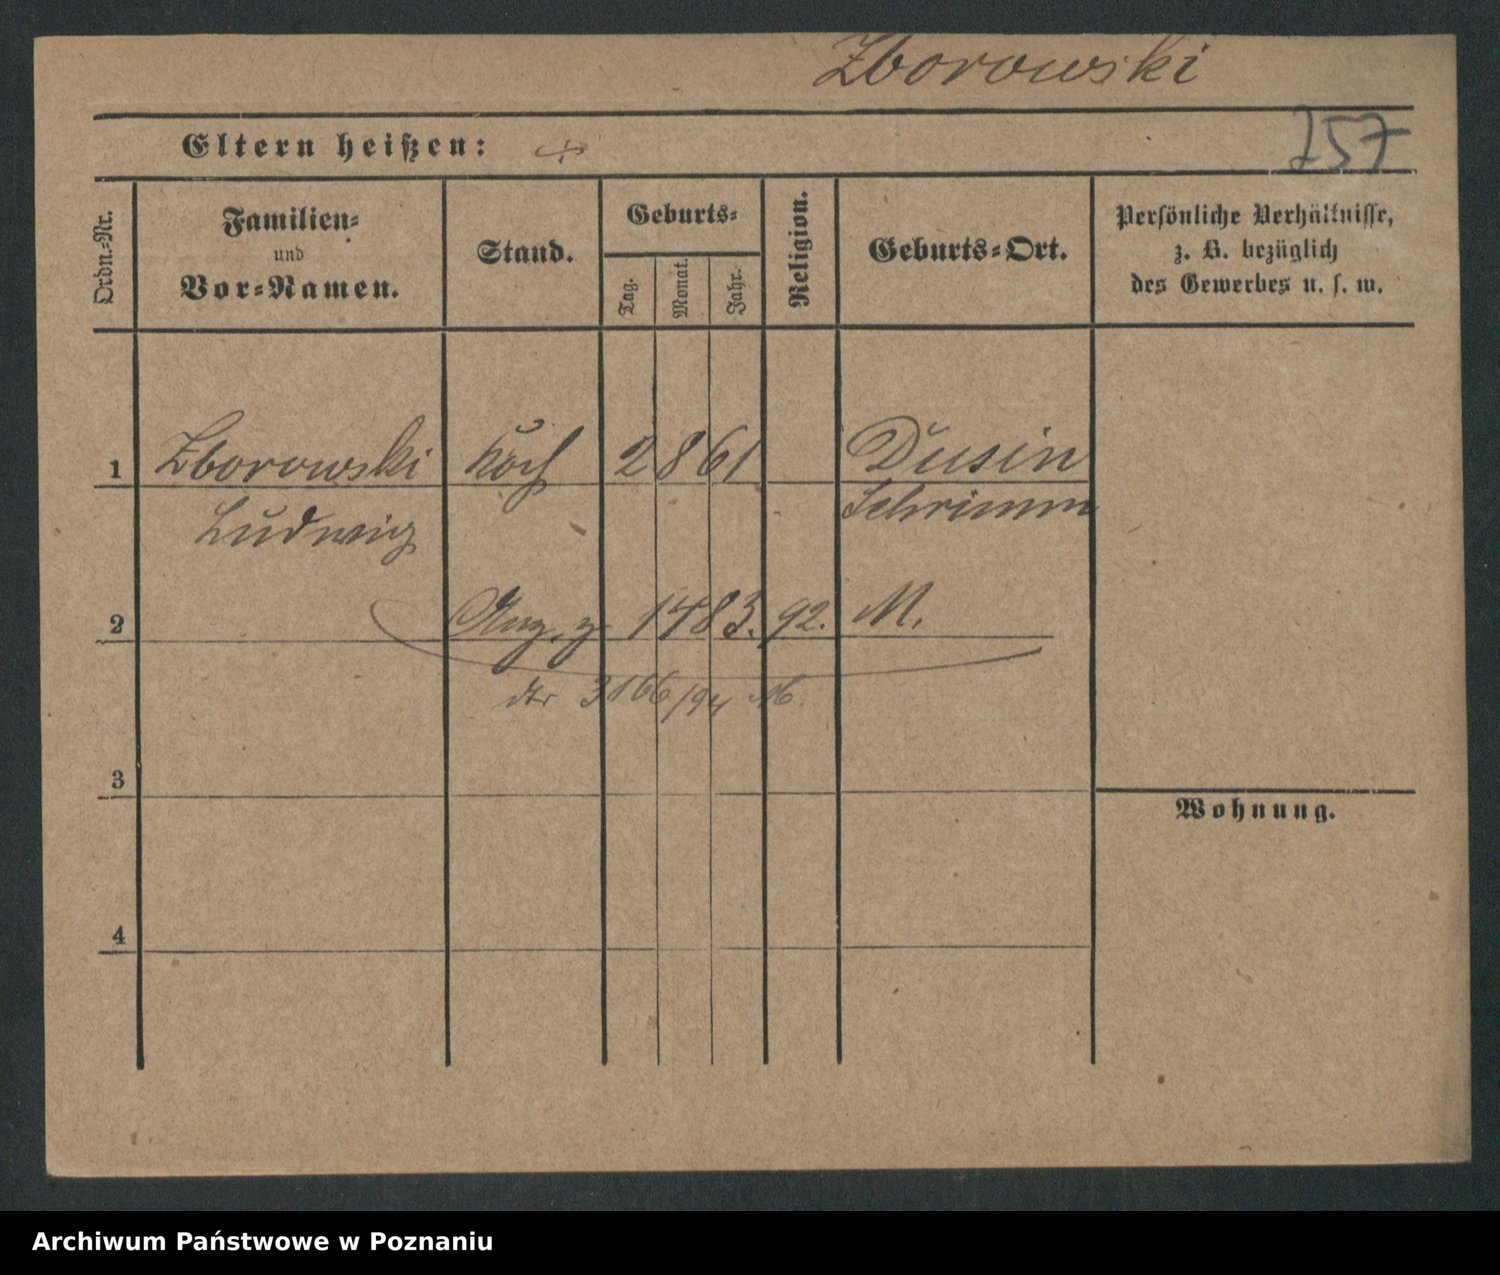 Zborowski
Eltern heißen:
757
Ordn.-Nr.
Familien-
und
Vor-Namen.
Stand.
Geburts-
Tag.
Monat.
Jahr.
Religion.
Geburts-Ort.
Persönliche Verhältnisse,
z. B. bezüglich
des Gewerbes u. s. w.
1 Zborowski Koch 2 8 61 Dusin
Ludwig Schrimm
2 Anz. z. 1483.92. M.
3166/94 M.
3
Wohnung.
4
Archiwum Państwowe w Poznaniu